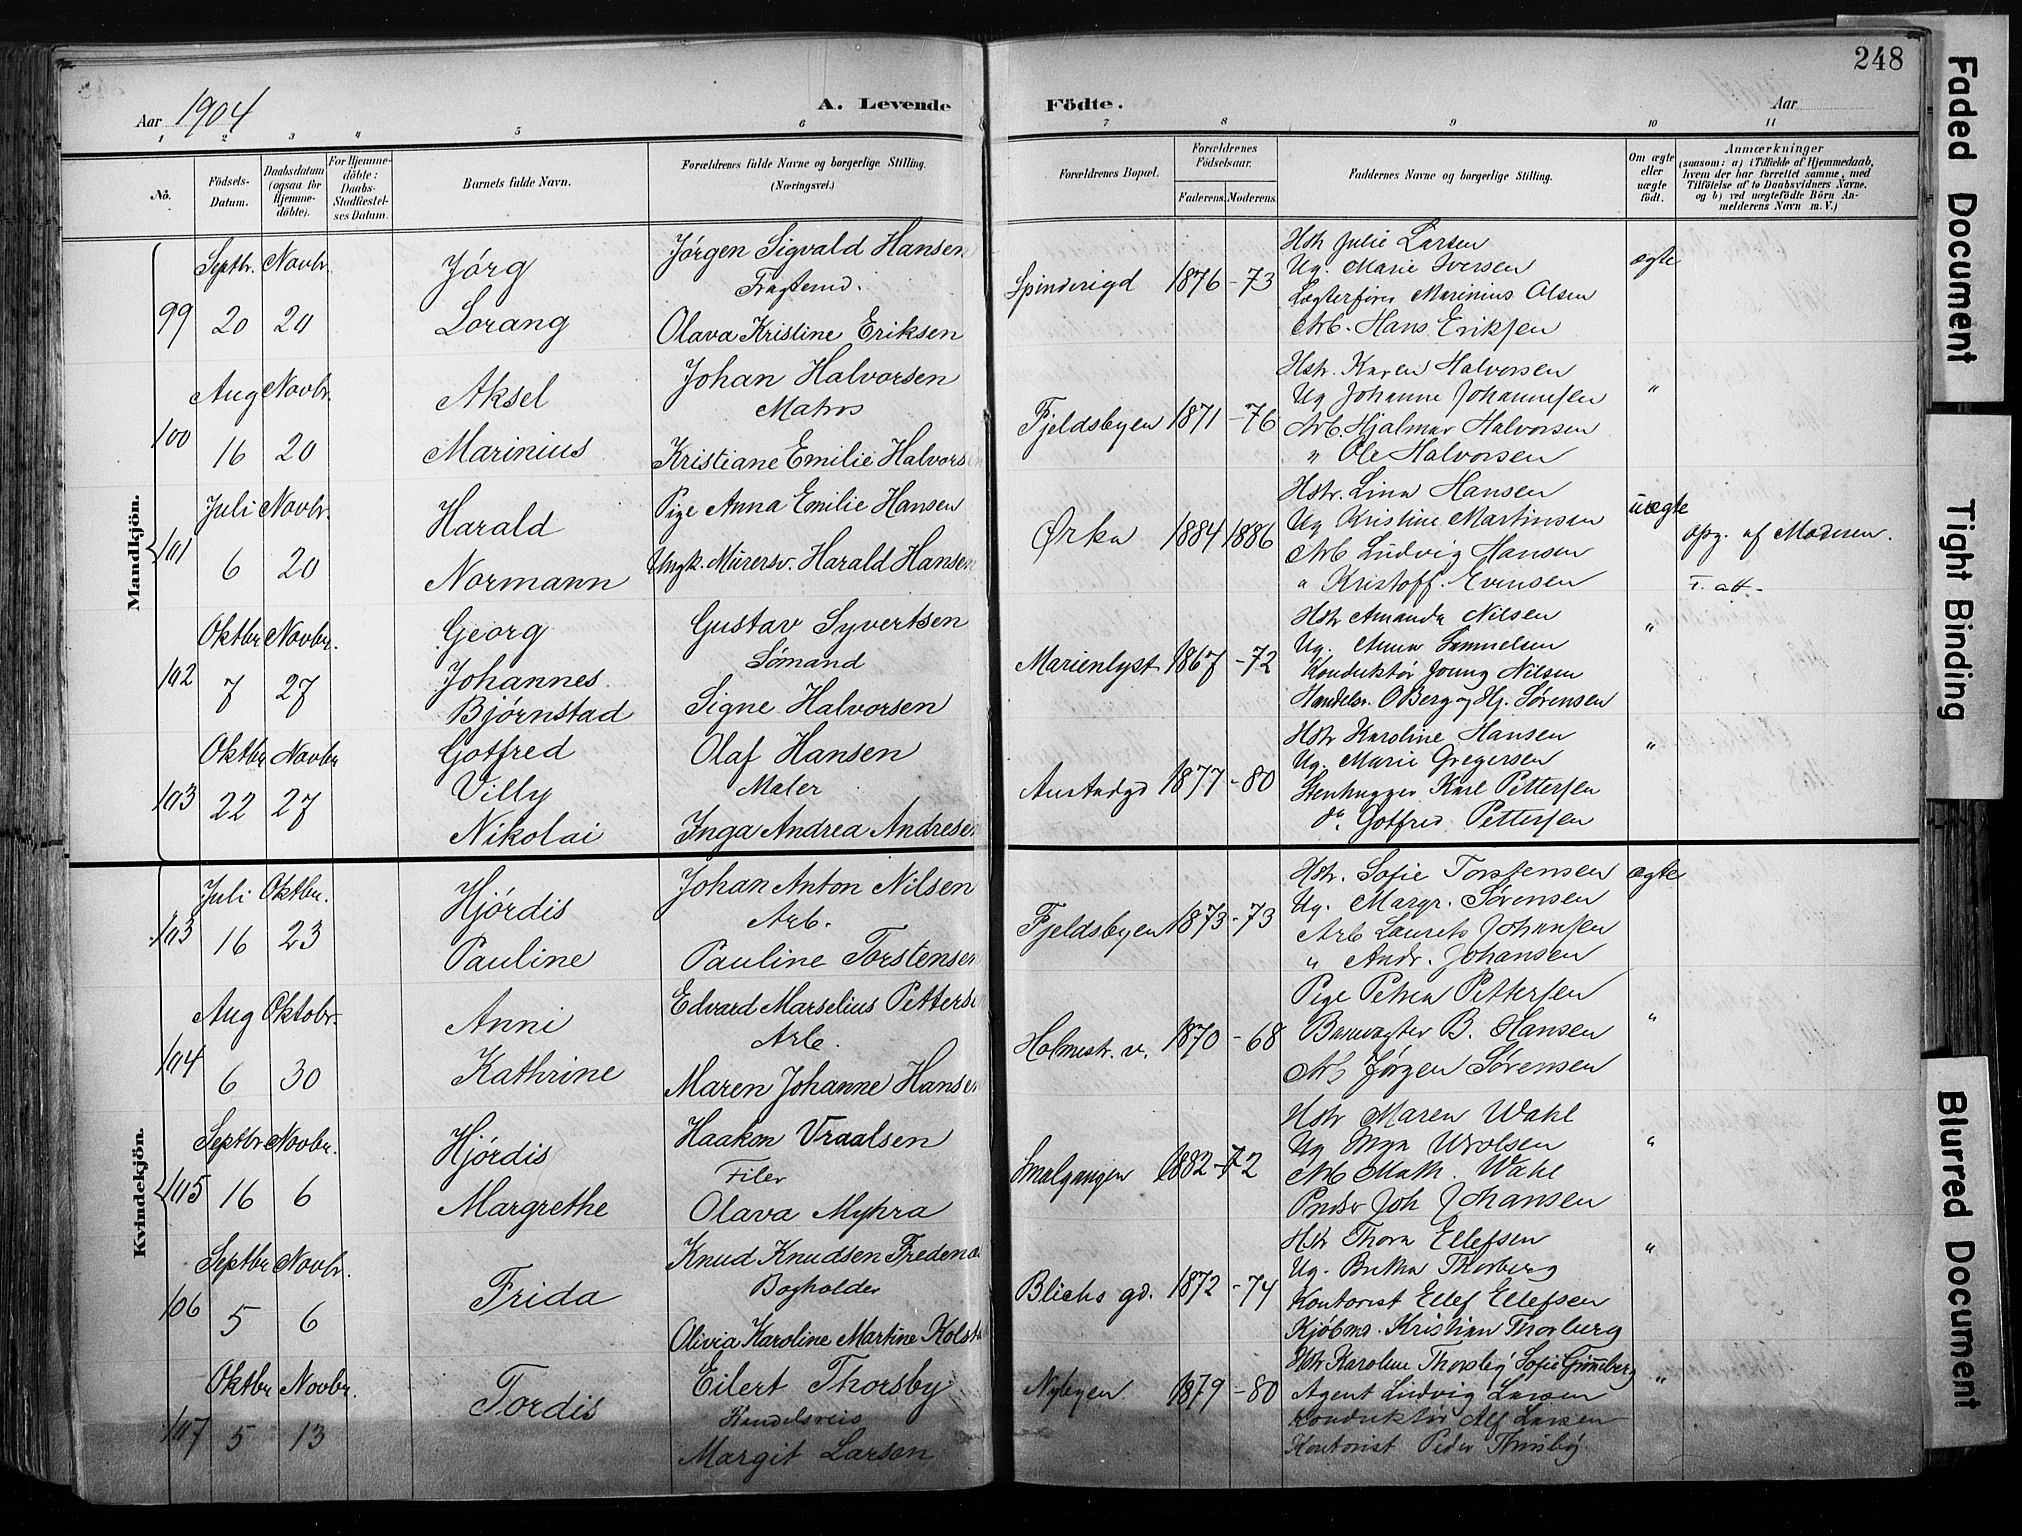 248
Aar 1904
A. Levende Födte.
Aar
1 2 3 4 5 6 7 8 9 10 11
No.
Födsels-Datum.
Daabsdatum (ogsaa för Hjemme-döbte).
For Hjemme-döbte: Daabs-Stadfæstel-ses Datum.
Barnets fulde Navn.
Forældrenes fulde Navne og borgerlige Stilling. (Næringsvei.)
Forældrenes Bopæl.
Forældrenes Födselsaar.
Faderens. Moderens.
Faddernes Navne og borgerlige Stilling.
Om ægte eller uægte födt.
Anmærkninger
(saasom: a) i Tilfælde af Hjemmedaab, hvem der har forrettet samme, med Tilföielse af to Daabsvidners Navne, og b) ved uægtefödte Börn An-melderens Navn m. V.)
Mandkjön.
99 Septbr. 20 Novbr. 20
Jørg
Lorang
Jørgen Sigvald Hansen
Fragtemd.
Olava Kristine Eriksen
Spinderigd 1876 -73
Hstr Julie Larsen
Ug. Marie Iversen
Lægterfører Marinius Olsen
Arb. Hans Eriksen
ægte
100 Aug 16 Novbr. 20
Aksel
Marinius
Johan Halvorsen
Matros
Kristiane Emilie Halvorsen
Fjeldsbyen 1871 -76
Hstr. Karen Halvorsen
Ug Johanne Johannesen
Arb. Hjalmar Halvorsen
" Ole Halvorsen
"
101 Juli 6 Novbr. 20
Harald
Normann
Pige Anna Emilie Hansen
Ungk. Murersv. Harald Hansen
Ørka 1884 1886
Hstr. Lina Hansen
Ug Kristine Martinsen
Arb Ludvig Hansen
" Kristoff. Evensen
uægte
opg. af Moderen.
F. att-
102 Oktbr 7 Novbr. 27
Georg
Johannes
Bjørnstad
Gustav Syvertsen
Sømand
Signe Halvorsen
Marienlyst 1867 -72
Hstr Amanda Nilsen
Ug. Anna Samuelsen
Konduktør Joung Nilsen
Handelsr. O Berg og Hj. Sørensen
"
103 Oktbr 22 Novbr 27
Gotfred
Villy
Nikolai
Olaf Hansen
Maler
Inga Andrea Andresen
1877 -80
Hstr Karoline Hansen
Ug. Marie Gregersen
Stenhugger Karl Pettersen
do. Gotfred Pettersen
"
Kvindekjön.
103 Juli 16 Oktbr. 23
Hjørdis
Pauline
Johan Anton Nilsen
Arb.
Pauline Torstensen
Fjeldsbyen 1873 -73
Hstr. Sofie Torstensen
Ug. Margr. Sørensen
Arb Laurits Johansen
" Andr. Johansen
ægte
104 Aug 6 Oktobr. 30
Anni
Kathrine
Edvard Marselius Petterse
Arb.
Maren Johanne Hansen
Holmestr. v. 1870 -68
Pige Petrea Pettersen
Banevogter B. Hansen
Arb Jørgen Sørensen
"
105 Septbr 16 Novbr. 6
Hjørdis
Margrethe
Haakon Vraalsen
Filer
Olava Myhra
Smalgangen 1882 -72
Hstr Maren Wahl
Ug
Arb Math. Wahl
Joh Johansen
"
106 Septbr 5 Novbr. 6
Frida
Knud Knudsen Fredena
Bogholder
Olivia Karoline Martine Kolst
Blichs gd. 1872 -74
Hstr Thora Ellefsen
Ug. Thorberg
Kontorist Ellef Ellefsen
Kjøbmd. Kristian Thorberg
"
107 Oktbr 5 Novbr. 13
Tordis
Eilert Thorsby
Handelsreis
Margit Larsen
Nybyen 1879 -80
Hstr Karoline Thorsby Sofie Grønneberg
Agent Ludvig Larsen
Konduktør Alf Larsen
Kontorist Peder Thorsby
"
Faded Document
Tight Binding
Blurred Document